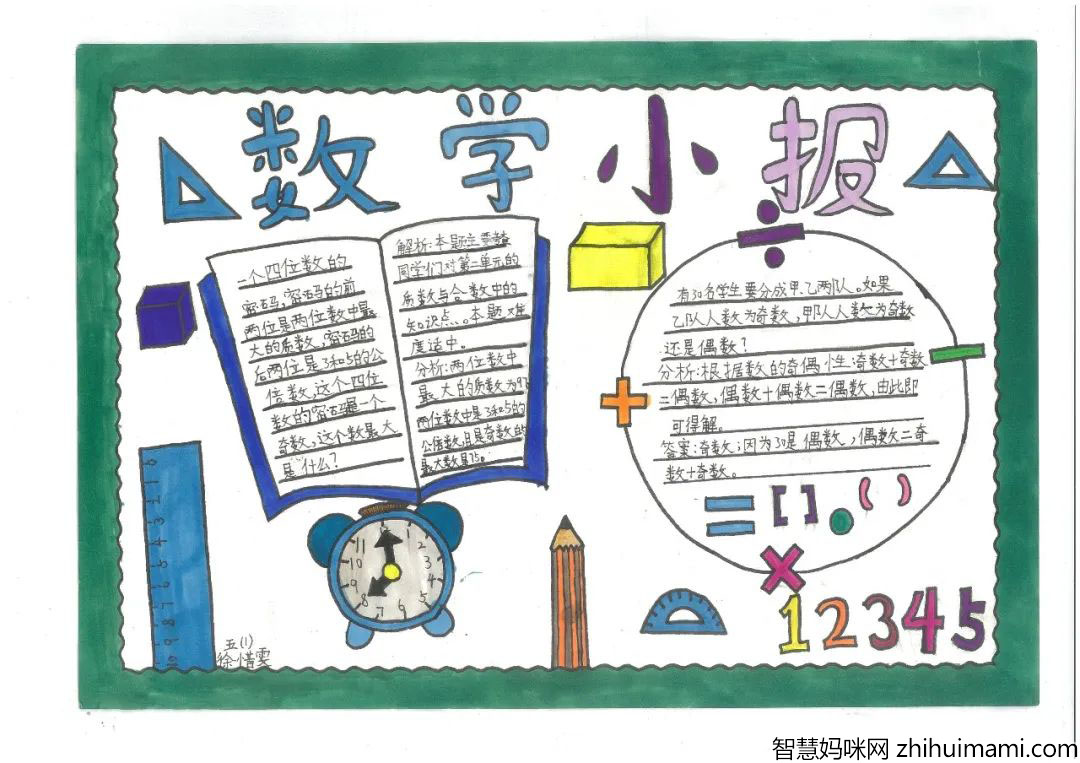 数学小报
一个四位数的
密码,密码的前
两位是两位数中最
大的质数,密码的
后两位是3和5的公
倍数,这个四位
数的密码是一个
奇数,这个数最大
是什么?
解析:本题主要考查
同学们对第二单元的
质数与合数中的
知识点、。本题难
度适中。
分析:两位数中
最大的质数为97
两位数中是3和5的
公倍数,且是奇数的
最大数是75。
有30名学生要分成甲、乙两队。如果
乙队人数为奇数,甲队人数为奇数
还是偶数?
分析:根据数的奇偶性:奇数+奇数
=偶数,偶数+偶数=偶数,由此即
可得解。
答案:奇数;因为30是偶数,偶数=奇
数+奇数。
÷
+
−
= [ ] . ( )
×
1 2 3 4 5
11 1 2 3 4 5 6 7 8 9 10
0 1 2 3 4 5 6 7 8 9 10
五(1)
徐惜雯
智慧妈咪网 zhihuimami.com